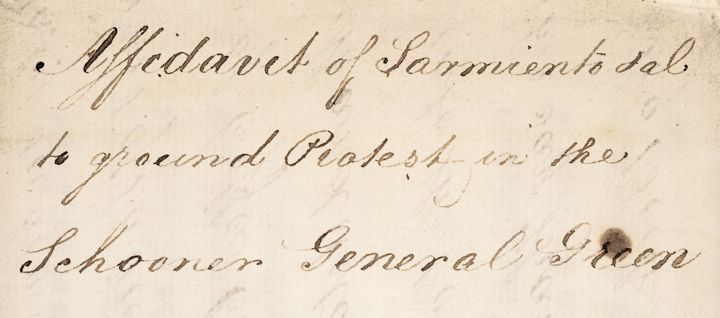 Affidavit of Sarmiento sal
to ground Protest in the
Schooner General Green